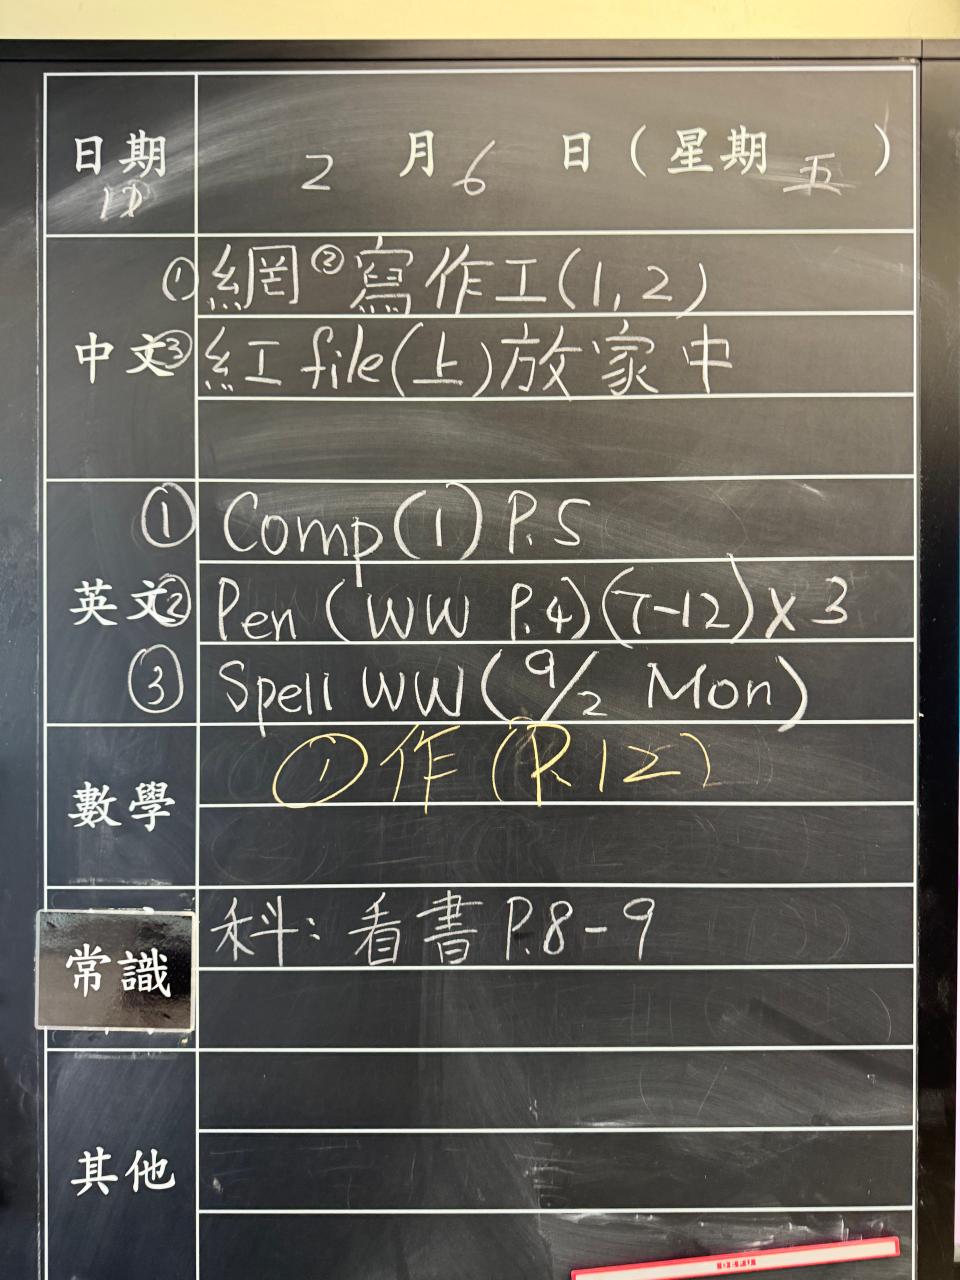 日期 2 月 6 日 ( 星期 五 )
1D
中文
① 網 ② 寫作工(1,2)
③ 紅file(上)放家中
英文
① Comp(1) P.5
② Pen (WW P.4)(7-12)×3
③ Spell WW (9/2 Mon)
數學
① 作 (P.12)
常識
科: 看書 P.8-9
其他